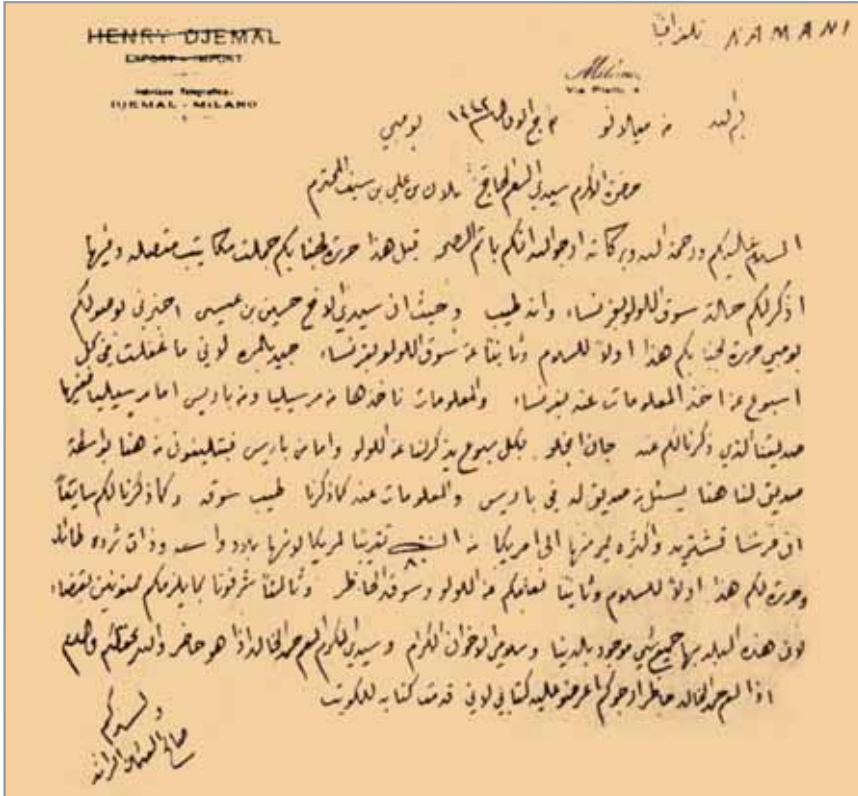 HENRY DJEMAL
EXPORT - IMPORT
DJEMAL - MILANO
NAMANI تلغرافيا
Milano
بومبي ١٣٤٢ من ميلانو
حضرة الاكرم سيدي هلال بن علي بن سيف المحترم
السلام عليكم ورحمة الله وبركاته ارجو الله انكم باتم الصحة قبل هذا حررة لجنابكم جملت مكاتيب متصله وفيها
اذكرلكم حالة سوق اللولو بفرنساء وانه طيب وحيث ان سيدي الافخم حسين بن عيسى اخبرني بوصولكم
بومبي حررة لجنابكم هذا اولاً للسلام وثانياً عن سوق اللولو بفرنساء جيد بالمره لاني ما غفلت في كل
اسبوع عن اخذ المعلومات عنه بفرنساء والمعلومات ناخذها من مرسيليا ومن باريس اما مرسيليا
صديقنا الذي ذكرنا لكم عنه جان انجلو بكل سبوع يذكرلنا عن اللولو واما من باريس فبتليفون من هنا بواسطة
صديق لنا هنا يسئل من صديق له في باريس والمعلومات عنه كما ذكرنا طيب سوقه وكما ذكرنا لكم سابقاً
ان فرنسا تشتريه واكثره يخرمنها الى امريكا من ٨٠ تقريبا لمريكا لونها بلاد واسعه وذات ثروه طائله
وحررة لكم هذا اولاً للسلام وثانيا نعلمكم عن اللولو وسوقه الحاظر وثالثاً شرفونا بما يلزمكم ممنونين بقضاء
لان هذه البلد بها جميع شي موجود بالدنيا وسلامي الاخوان الكرام وسيدي المكرم حمد الخالد اذا هو حاضر والله يحفظكم والسلام
اذا حمد الخالد حاظر ارجوكم اعرضو عليه كتابي لاني قدمت كتابه للكويت
صالح العثمان الراشد